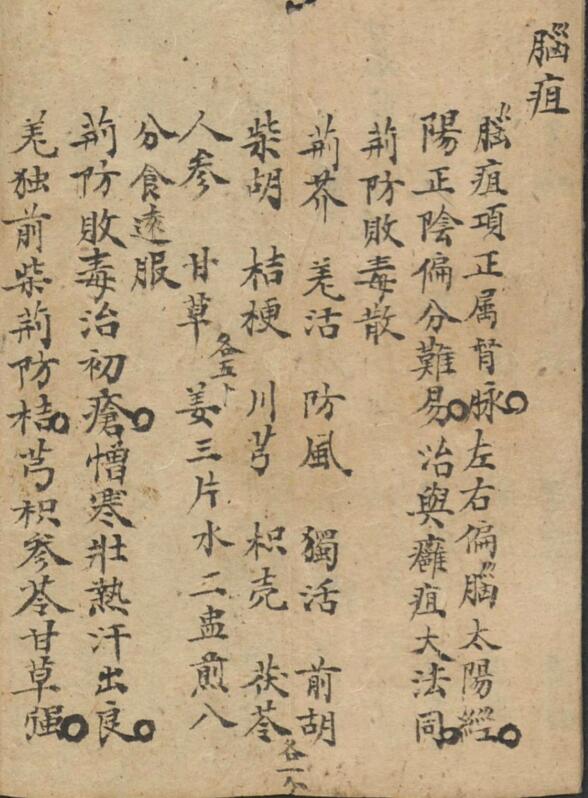 腦疽
腦疽項正属督脉左右偏腦太陽經
陽正陰偏分難易治與癰疽大法同
荊防敗毒散
荊芥 羌活 防風 獨活 前胡
柴胡 桔梗 川芎 枳壳 茯苓各一个
人参 甘草各五卜 姜三片水二盅煎八
分食遠服
荊防敗毒治初瘡憎寒壯熱汗出良
羌独前柴荊防桔芎枳参苓甘草强